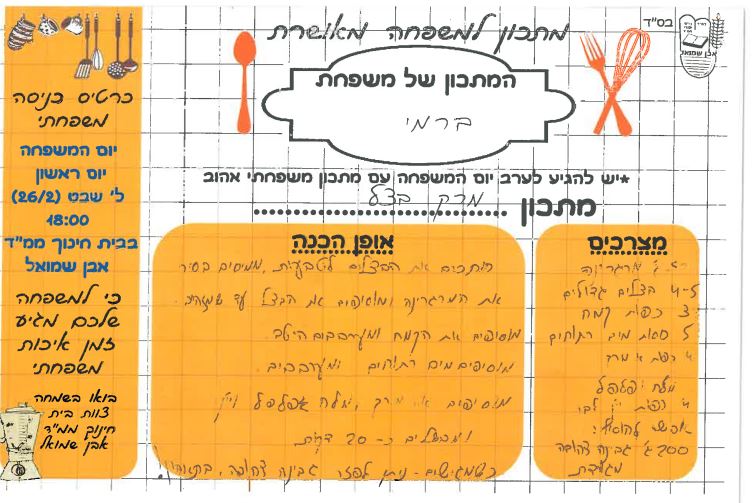 בס"ד
מתכון למשפחה מאושרת
המתכון של משפחת
ברמי
*יש להגיע לערב יום המשפחה עם מתכון משפחתי אהוב
מתכון מרק בצל
כרטיס כניסה
משפחתי
יום המשפחה
יום ראשון
ל' שבט (26/2)
18:00
בבית חינוך ממ"ד
אבן שמואל
כי למשפחה
שלכם מגיע
זמן איכות
משפחתי
בואו בשמחה
צוות בית
חינוך ממ"ד
אבן שמואל
מצרכים
מרגרינה
4-5 בצלים גדולים
3 כפות קמח
5 כוסות מים רותחים
4 כפות א. מרק
מלח ופלפל
4 כפות יין לבן
אפשר להוסיף:
200 ג' גבינה צהובה
מגורדת
אופן הכנה
חותכים את הבצלים לטבעות, ממיסים בסיר
את המרגרינה ומוסיפים את הבצל עד שמזהיב.
מוסיפים את הקמח ומערבבים היטב.
מוסיפים מים רותחים ומערבבים.
מוסיפים א. מרק, מלח ופלפל ויין
ומבשלים כ- 20 דקות
כשמגישים - ניתן לפזר גבינה צהובה,